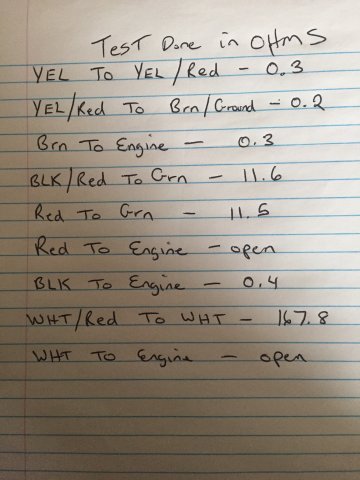 Test Done in OHMS
YEL To YEL/Red - 0.3
YEL/Red To Brn/Ground - 0.2
Brn To Engine - 0.3
BLK/Red To Grn - 11.6
Red To Grn - 11.5
Red To Engine - open
BLK To Engine - 0.4
WHT/Red To WHT - 167.8
WHT To Engine - open